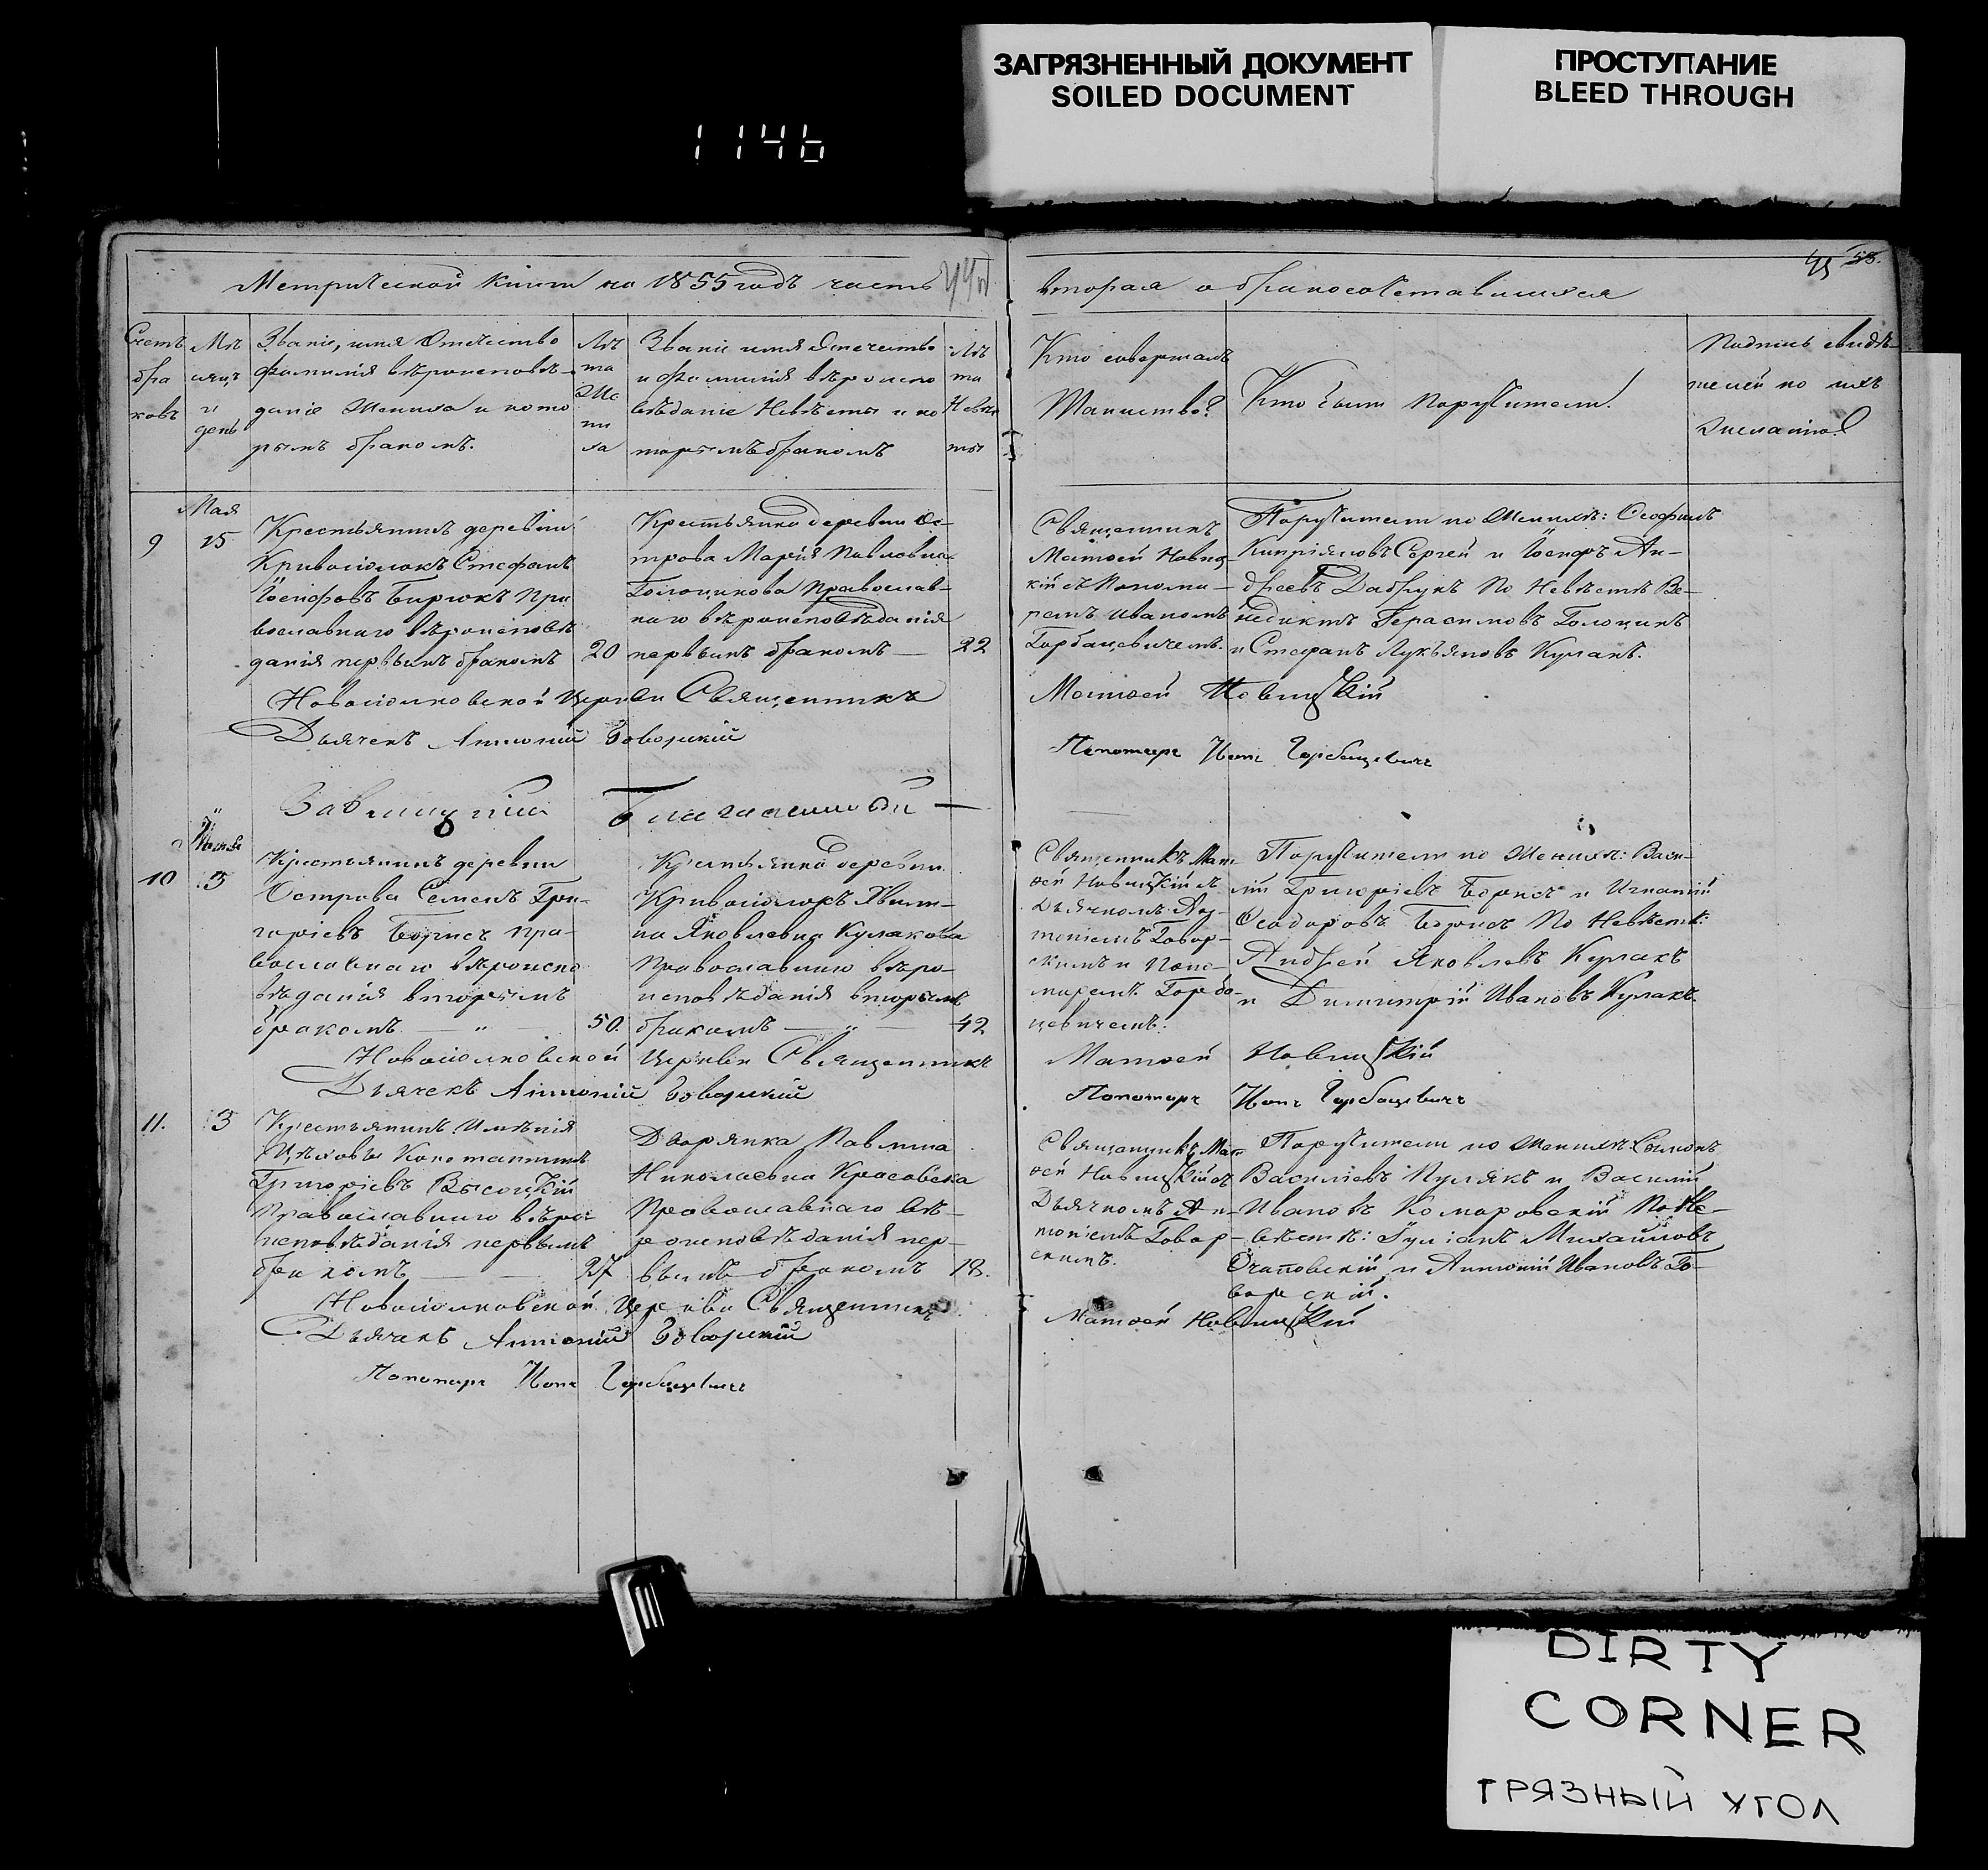 ЗАГРЯЗНЕННЫЙ ДОКУМЕНТ
SOILED DOCUMENT
ПРОСТУПАНИЕ
BLEED THROUGH
1146
Метрической книги на 1855 годъ часть
вторая о бракосочетавшихся
45 58.
Счетъ
бра
ковъ
Мѣ
сяцъ
и
день
Званіе, имя Отчество
фамилія вѣроисповѣ-
даніе Жениха и кото
рымъ бракомъ.
Лѣ
та
Же
ни
ха
Званіе имя Отечество
и Фамилія вѣроиспо
вѣданіе Невѣсты и ко
торымъ бракомъ
Лѣ
та
Невѣс
ты
Кто совершалъ
Таинство?
Кто были поручители.
Подпись свидѣ-
телей по ихъ
желанію
9
Мая
15
Крестьянинъ деревни
Кривосілокъ Стефанъ
Іосифовъ Бирюкъ Пра
вославнаго вѣроисповѣ
данія первымъ бракомъ
20
Крестьянка деревни Ос-
трова Марія Павловна
Голоцикова Православ-
наго вѣроисповѣданія
первымъ бракомъ —
22
Священникъ
Матѳей Новиц-
кій съ Понома-
ремъ Иваномъ
Горбацевичемъ.
Поручители по Женихѣ: Ѳеофилъ
Кипріяновъ Сергей и Іосифъ Ан-
дреевъ Дабрукъ По Невѣстѣ Ве-
недиктъ Герасимовъ Голоцикъ
и Стефанъ Лукьяновъ Кулакъ.
Новосіолковской Церкви Священникъ
Матѳей Новицкій
Дьячекъ Антоній Говорскій
Пономарь Иванъ Горбацевичъ
Благочинный —
10
3
Крестьянинъ деревни
Острова Семенъ Гри-
горіевъ Борисъ Пра-
вославнаго вѣроиспо
вѣданія вторымъ
бракомъ — „ —
50.
Крестьянка деревни
Кривосіолокъ Яковлевна Кулакова
Православнаго вѣро-
исповѣданія вторымъ
бракомъ — „ —
42
Священникъ Мат-
ѳей Новицкій съ
Дьячкомъ Ан-
тоніемъ Говор-
скимъ и Поно-
маремъ Горба-
цевичемъ.
Поручители по Женихѣ: Васи-
лій Григоріевъ Борисъ и Игнатій
Ѳеодоровъ Борисъ По Невѣстѣ:
Андрей Яковлевъ Кулакъ
и Димитрій Ивановъ Кулакъ.
Новосіолковской Церкви Священникъ
Матѳей Новицкій
Дьячекъ Антоній Говорскій
Пономарь Иванъ Горбацевичъ
11.
3
Крестьянинъ Имѣнія
Константинъ
Григоріевъ Высоцкій
Православнаго вѣро
исповѣданія первымъ
бракомъ —
27
Дворянка Павлина
Николаевна Красовска
Православнаго вѣ-
роисповѣданія пер-
вымъ бракомъ
18.
Священникъ Мат
ѳей Новицкій съ
Дьячкомъ Ан-
тоніемъ Говор-
скимъ.
Поручители по Женихѣ: Сымонъ
Василіевъ Пулякъ и Василій
Ивановъ Комаровскій По Не-
вѣстѣ: Іуліанъ Михайловъ
Очаповскій и Антоній Ивановъ Го-
ворскій.
Новосіолковской Церкви Священникъ
Матѳей Новицкій
Дьячекъ Антоній Говорскій
Пономарь Иванъ Горбацевичъ
DIRTY
CORNER
ГРЯЗНЫЙ УГОЛ